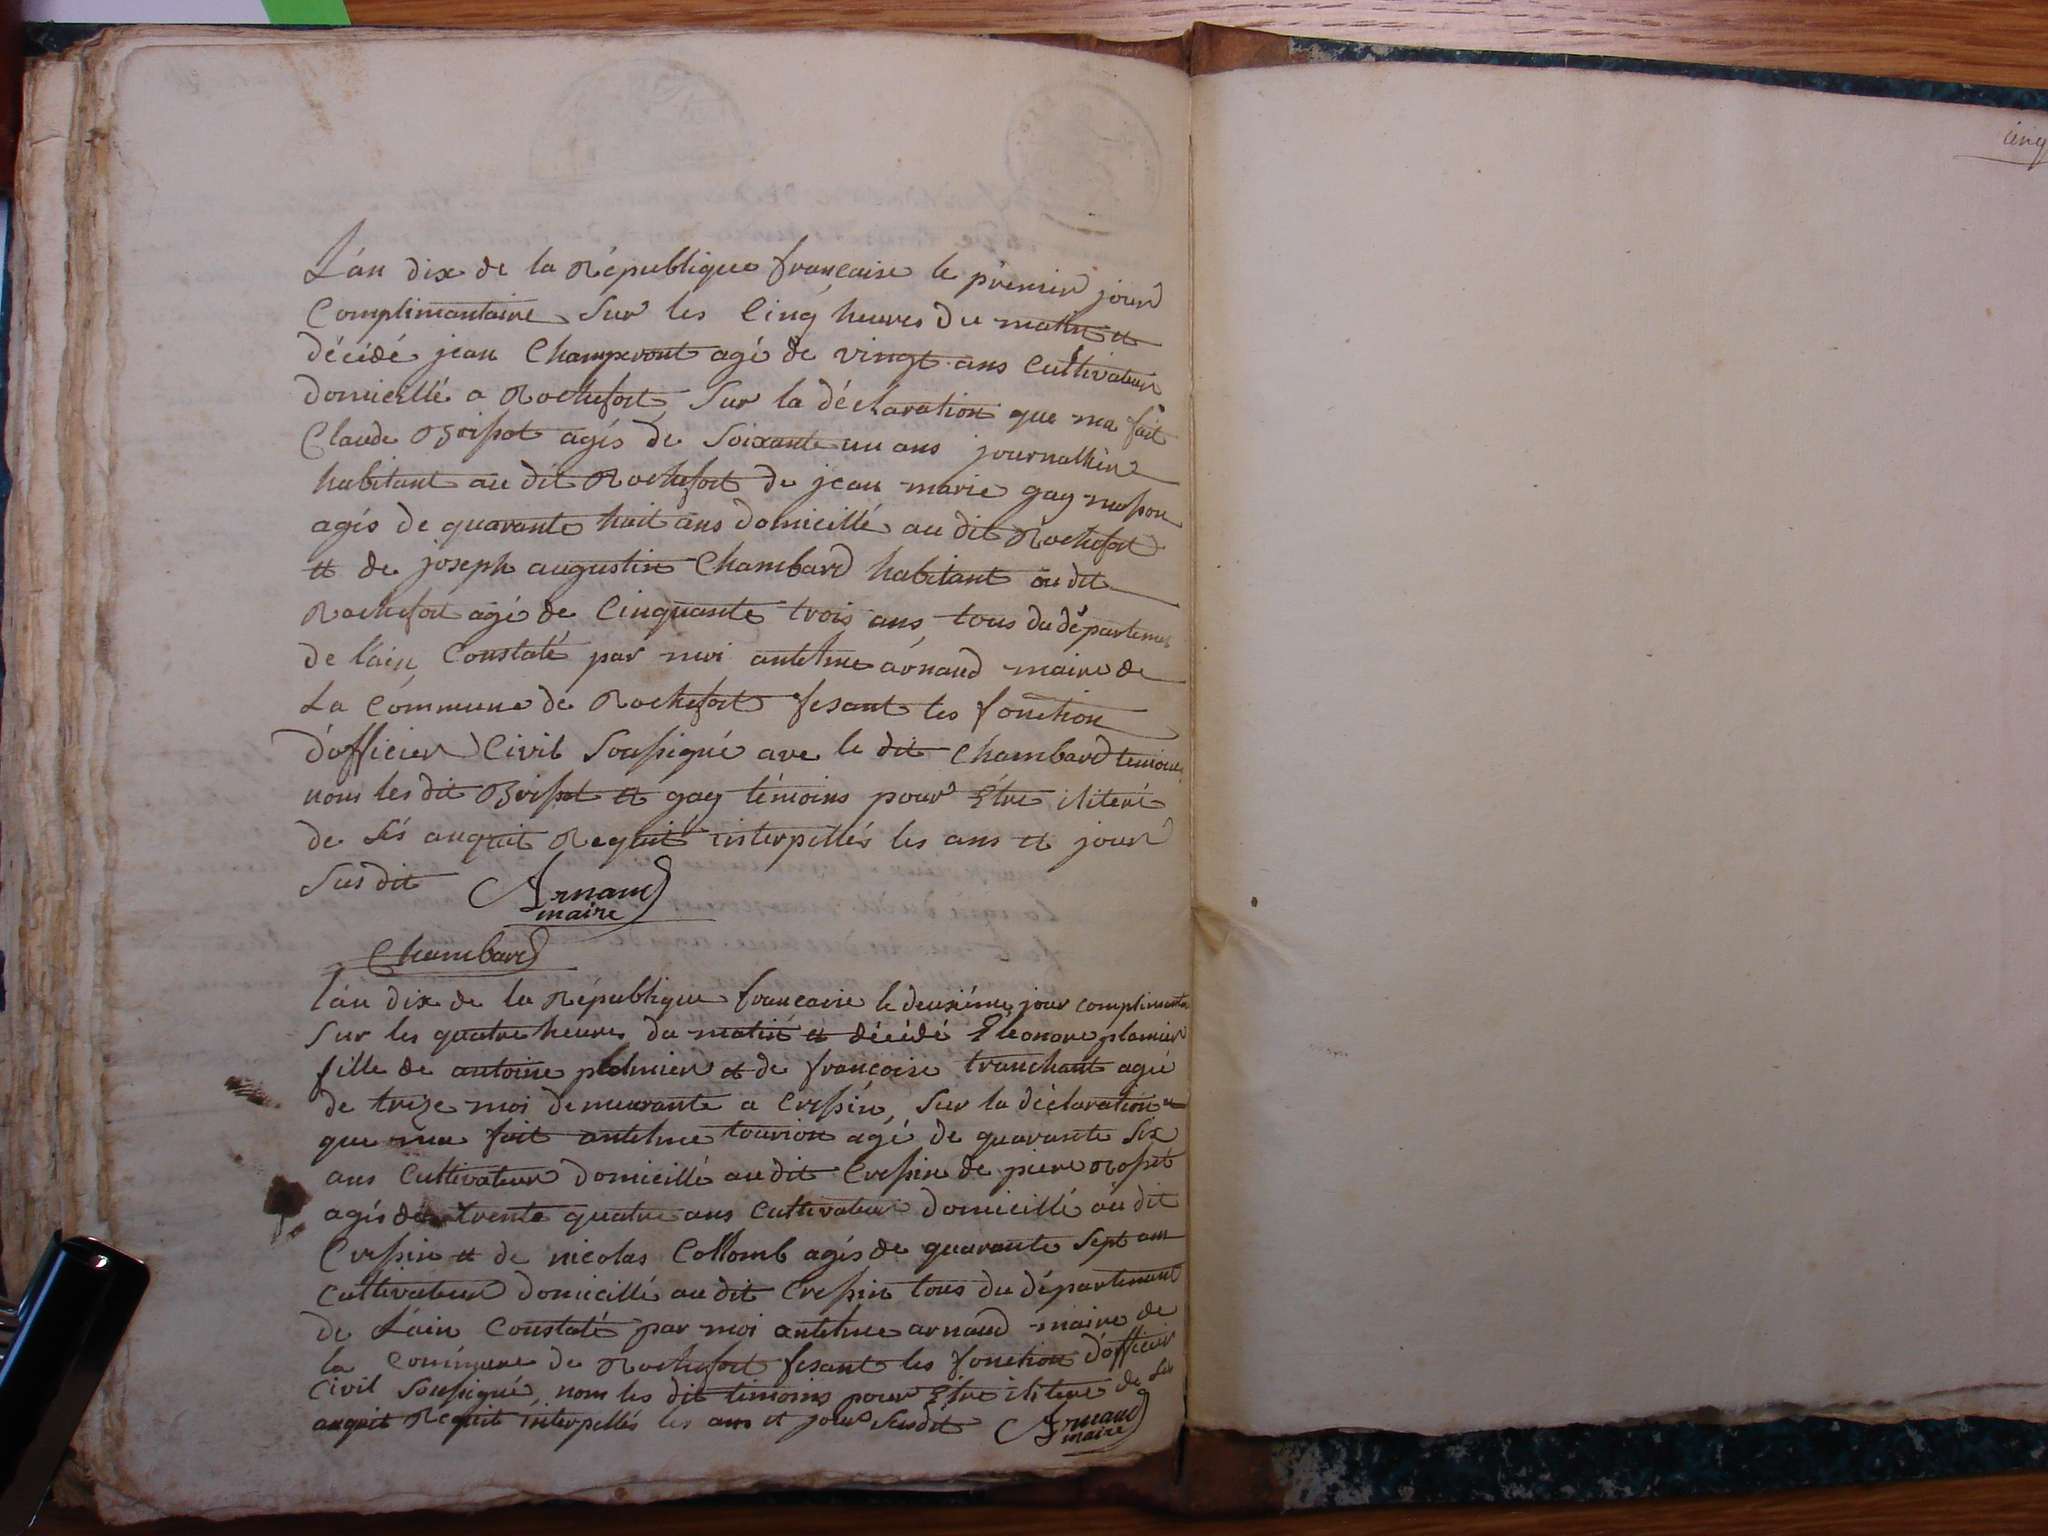 L'an dix de la République française le prémier jour
Complimantaire Sur les Cinq heures du matin et
décédé jean Champevont agé de vingt ans Cultivateur
domicillé a Rochefort Sur la déclaration que ma fait
Claude Brissot agés de Soixante un ans journallier
habitant au dit Rochefort de jean marie gay masson
agés de quarante huit ans domicillé au dit Rochefort
et de joseph augustin Chambard habitant au dit
Rochefort agé de Cinquante trois ans tous du départemen
de l'ain Constaté par moi antelme arnaud maire de
La Commune de Rochefort fesant les fonction
d'officier Civil Soussigné ave le dit Chambard temoin
nom les dit Brissot et gay témoins pour Etre iliteré
de Sés anquit Requit interpellés les ans et jour
Sus dit Arnaud
maire
Chambard
l'an dix de la République francaire le deuxiéme jour complimenta
Sur les quatre heures du matin et décédé Eleonore plamier
fille de antoine plamier et de francoise tranchant agée
de treize moi demeurante a Cressin, Sur la déclaration
que ma fait antelme tournion agé de quarante Six
ans Cultivateur domicillé au dit Cressin de piere Rosset
agés de trente quatre ans Cultivateur domicillé au dit
Cressin et de nicolas Collomb agés de quarante Sept ans
Cultivateur domicillé au dit Cressin tous du département
de L'ain Constaté par moi antelme arnaud maire de
la Commune de Rochefort fesant les fonction d'officier
Civil Soussigné, nom les dit témoins pour Etre ilitere de Ses
anquit Requit interpellés les ans et jour Susdit Arnaud
maire
cinq